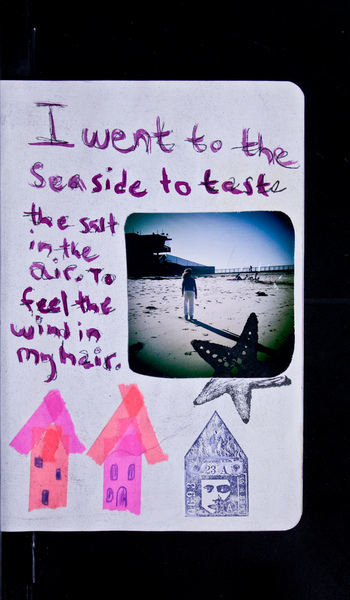 I went to the
Seaside to taste
the salt
in the
air. To
feel the
wind in
my hair.
23 A